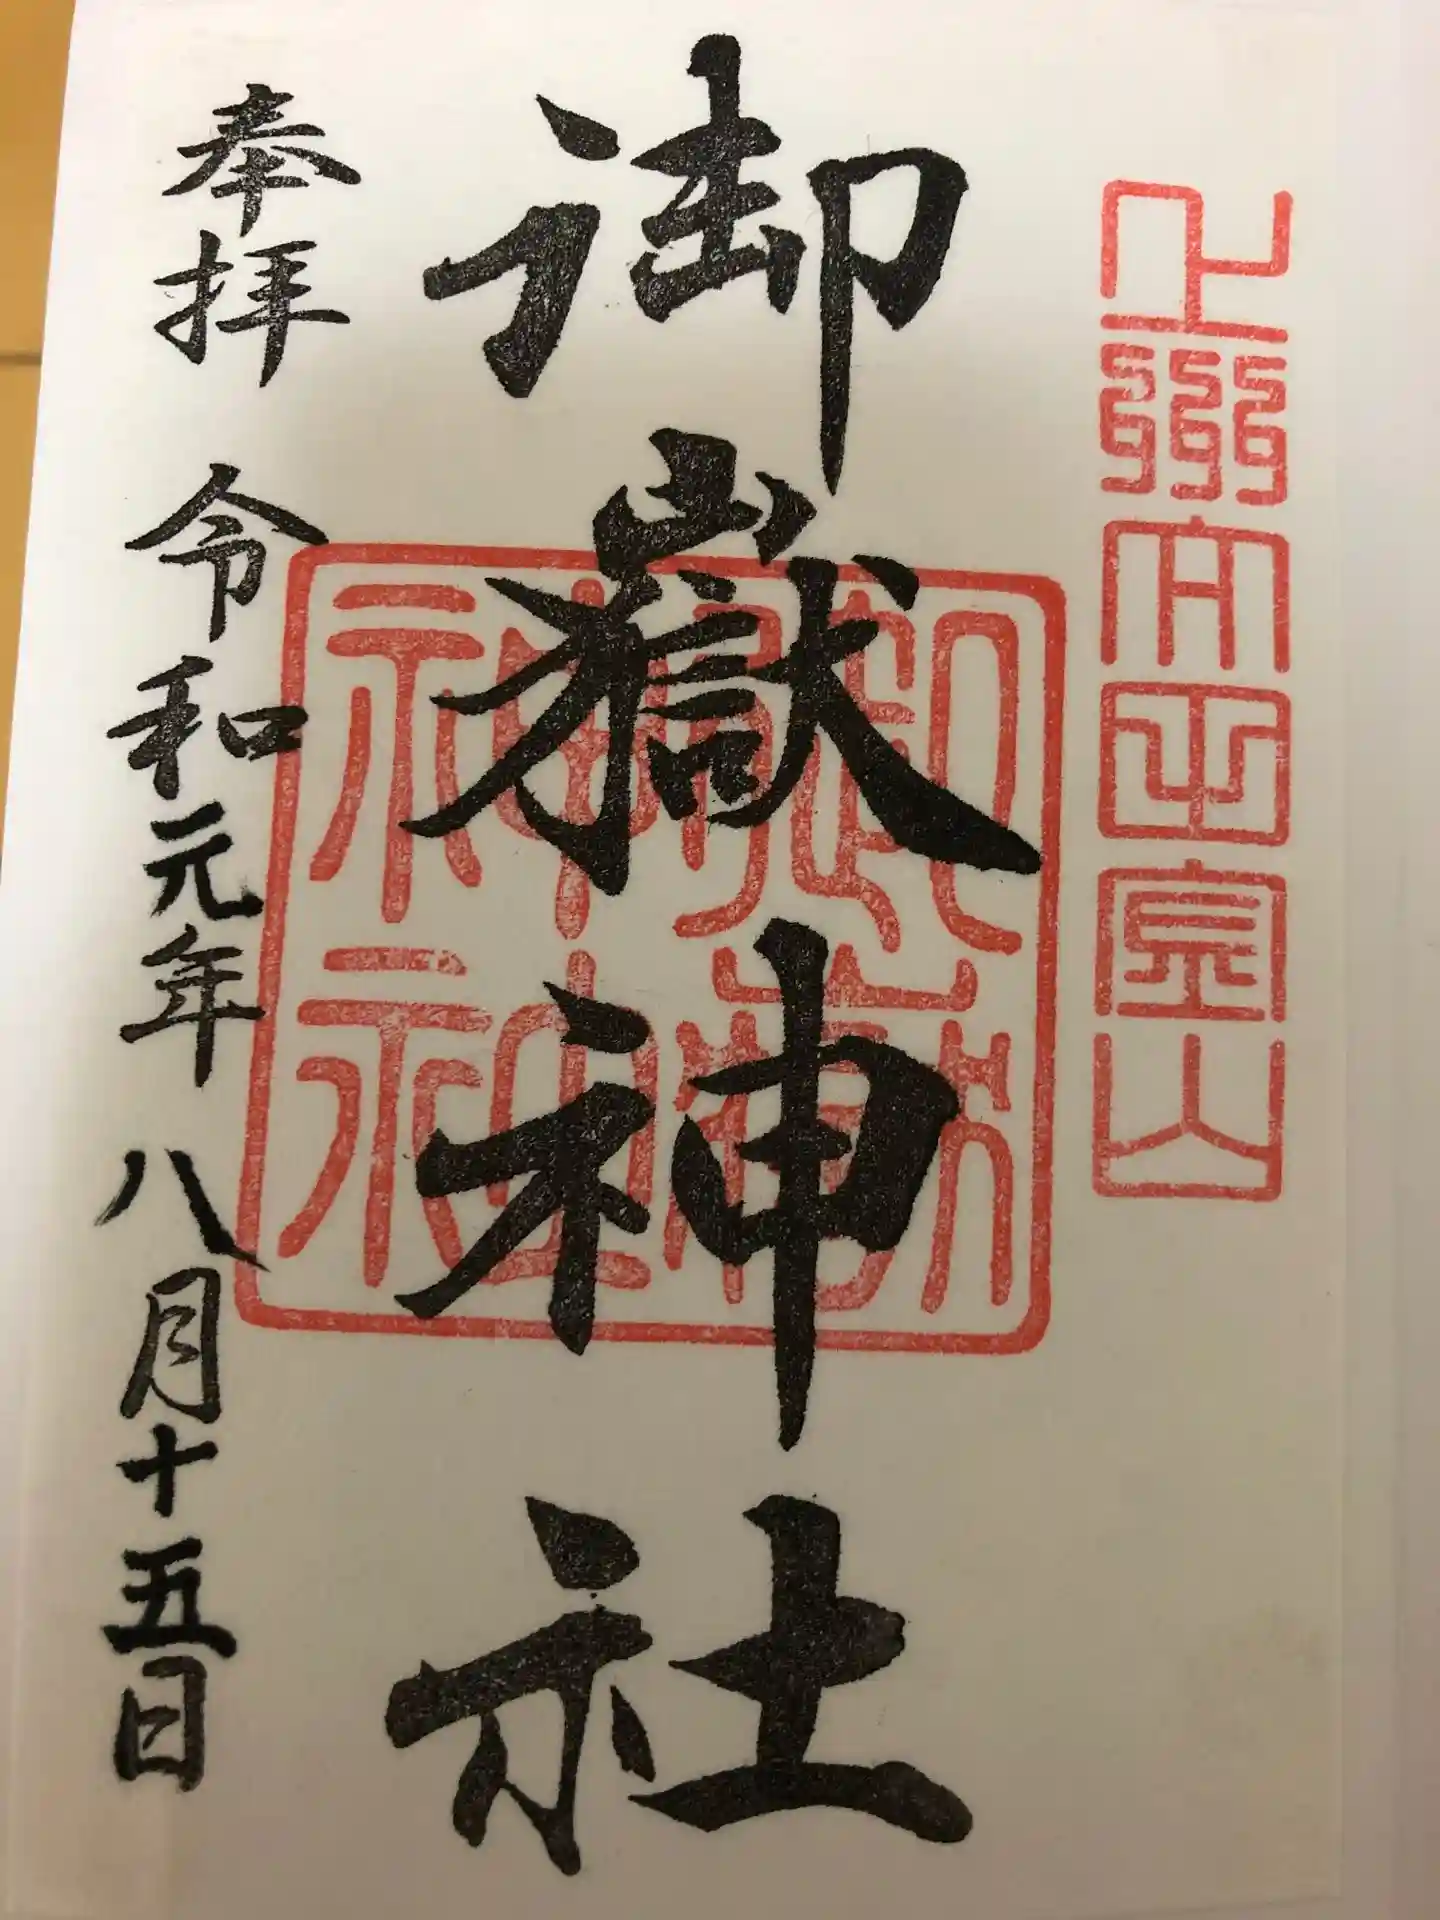 上州太田金山
御嶽神社
御嶽
神社
奉拝　令和元年　八月十五日